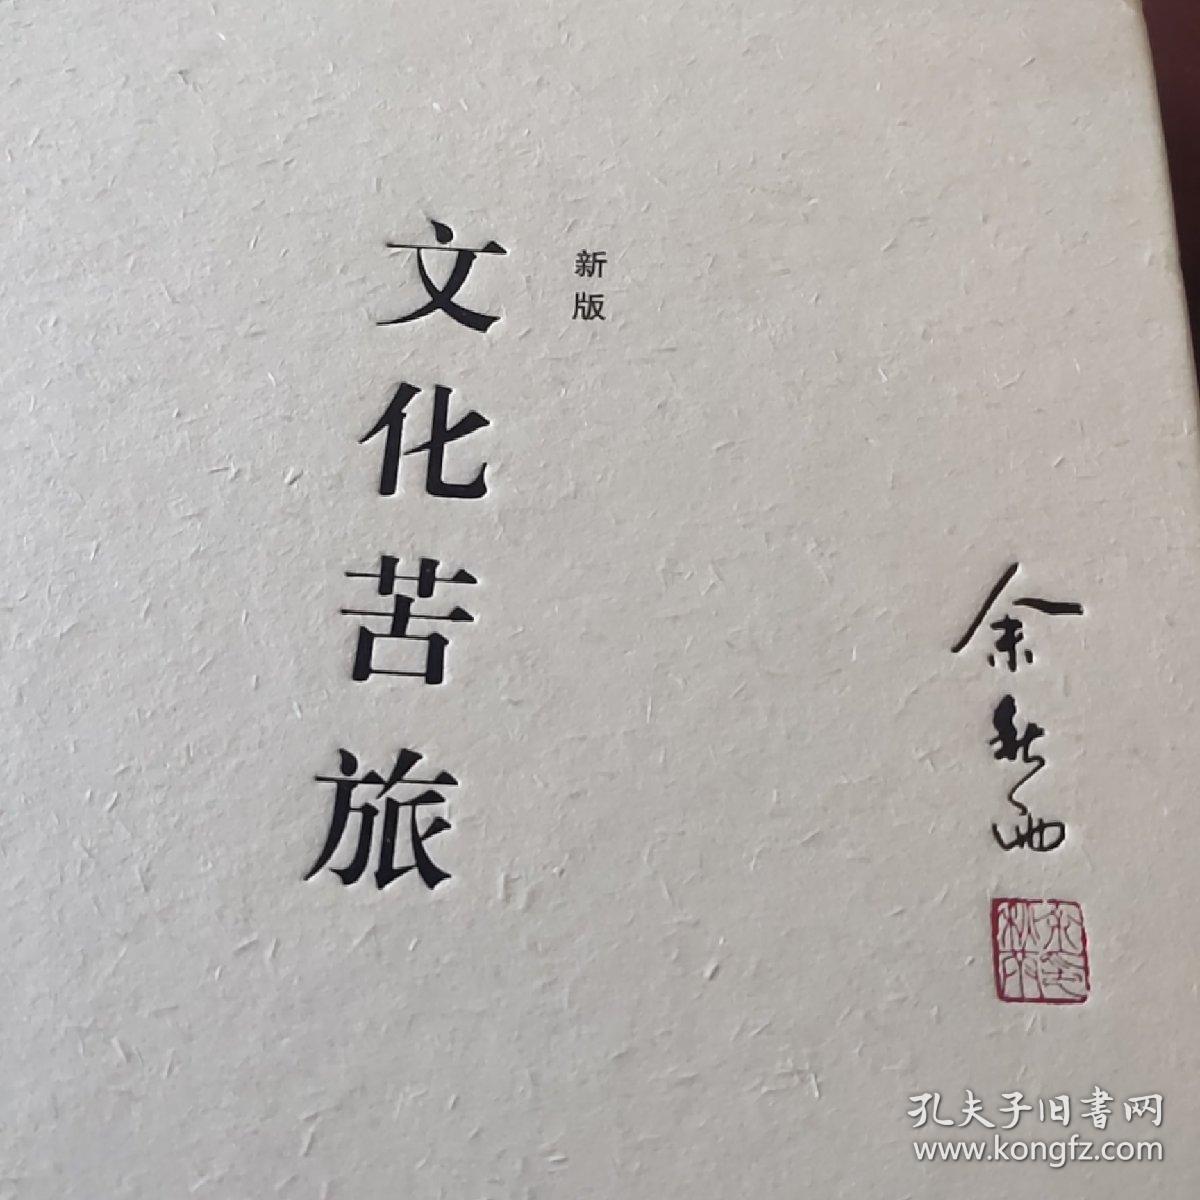 新版
文化苦旅
余秋雨
孔夫子旧書网
www.kongfz.com